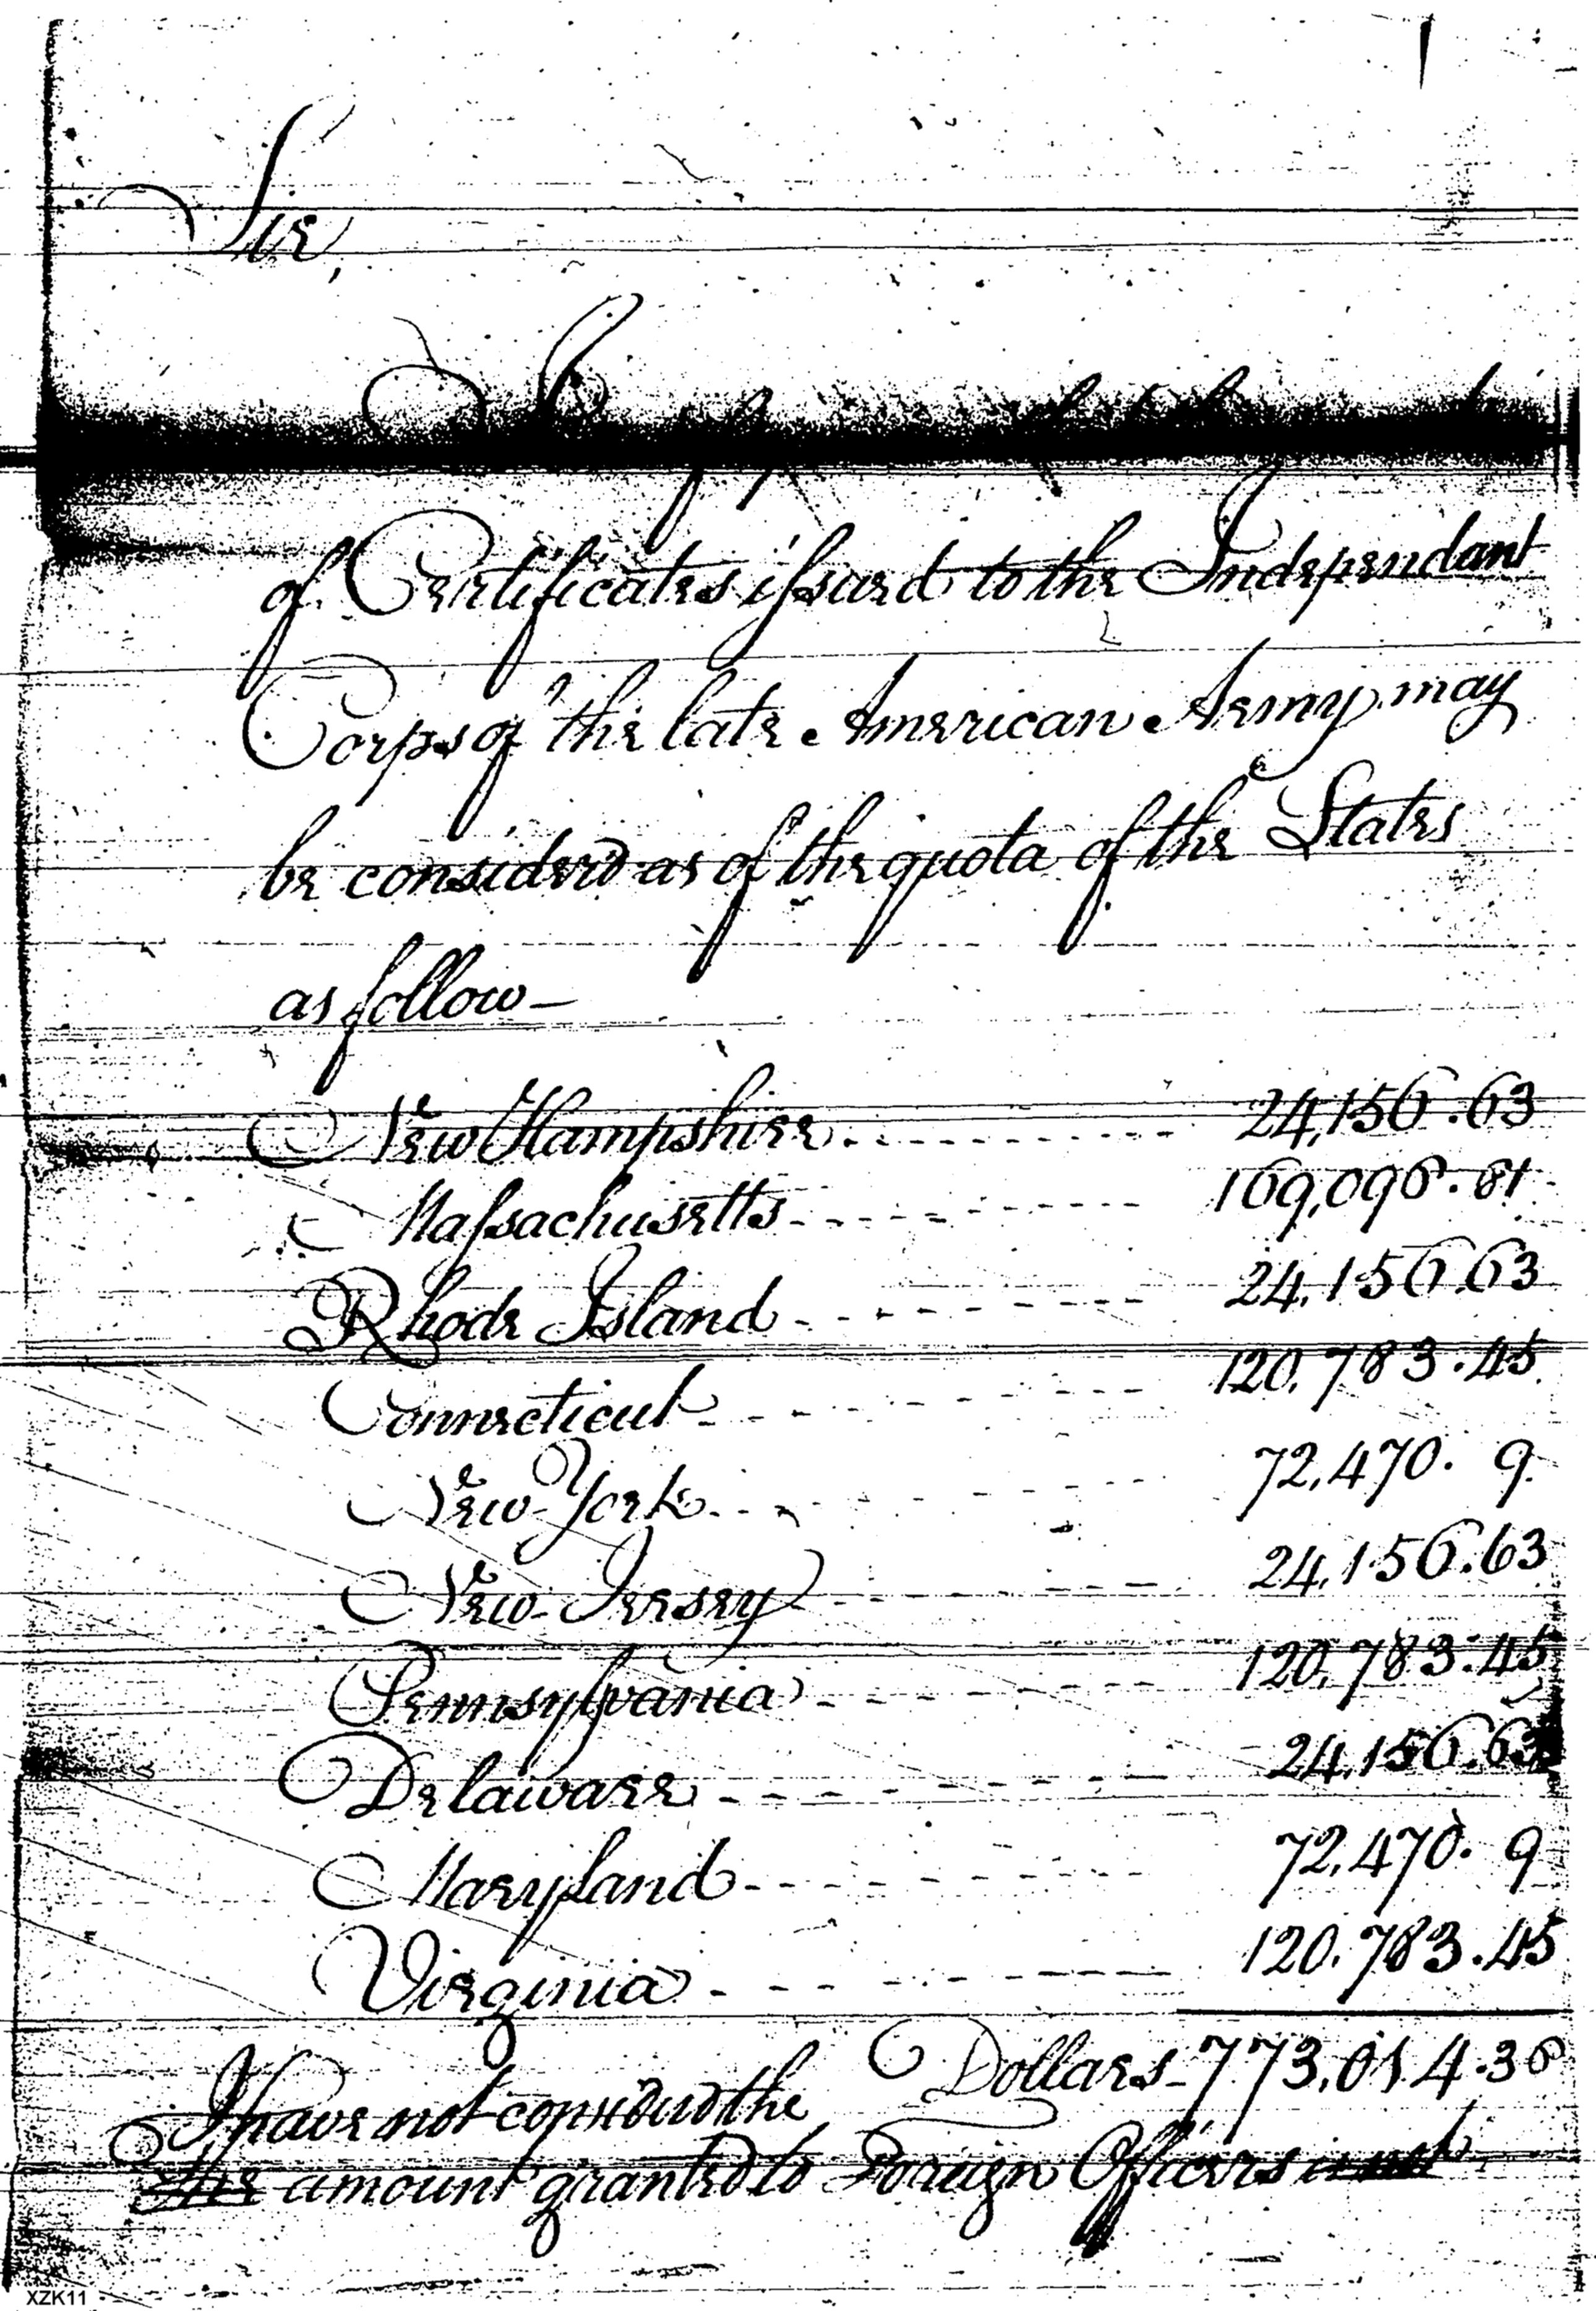 Sir,
of Certificates issued to the Independant
Corps of the late American Army may
be considerd as of the quota of the States
as follow—
New Hampshire - - - - - - - - - - 24,156.63
Massachusetts - - - - - - - - - - 169,096.81
Rhode Island - - - - - - - - - - 24,156.63
Connecticut - - - - - - - - - - 120,783.45
New-York - - - - - - - - - - 72,470. 9
New-Jersey - - - - - - - - - - 24,156.63
Pennsylvania - - - - - - - - - - 120,783.45
Delaware - - - - - - - - - - 24,156.63
Maryland - - - - - - - - - - 72,470. 9
Virginia - - - - - - - - - - 120,783.45
Dollars - 773,014.36
I have not considerd the
the amount granted to Foreign Officers is not
XZK11